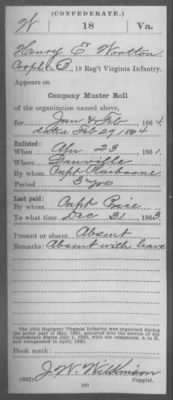 (CONFEDERATE.)
W 18 Va.
Henry E Wootton
Corpl, Co. B, 18 Reg't Virginia Infantry.
Appears on
Company Muster Roll
of the organization named above,
for Jan & Feb, 1864.
dated Feb 29, 1864
Enlisted:
When Apr 23, 1861.
Where Danville
By whom Capt Claiborne
Period 3 yrs
Last paid:
By whom Capt Price
To what time Dec 31, 1863.
Present or absent Absent
Remarks: Absent with leave
The 18th Regiment Virginia Infantry was organized
Confederate States July 1, 1861, with companies A to K
and reorganized in April, 1862.
Book mark:
J. W. Wilkinson
(642) Copyist.